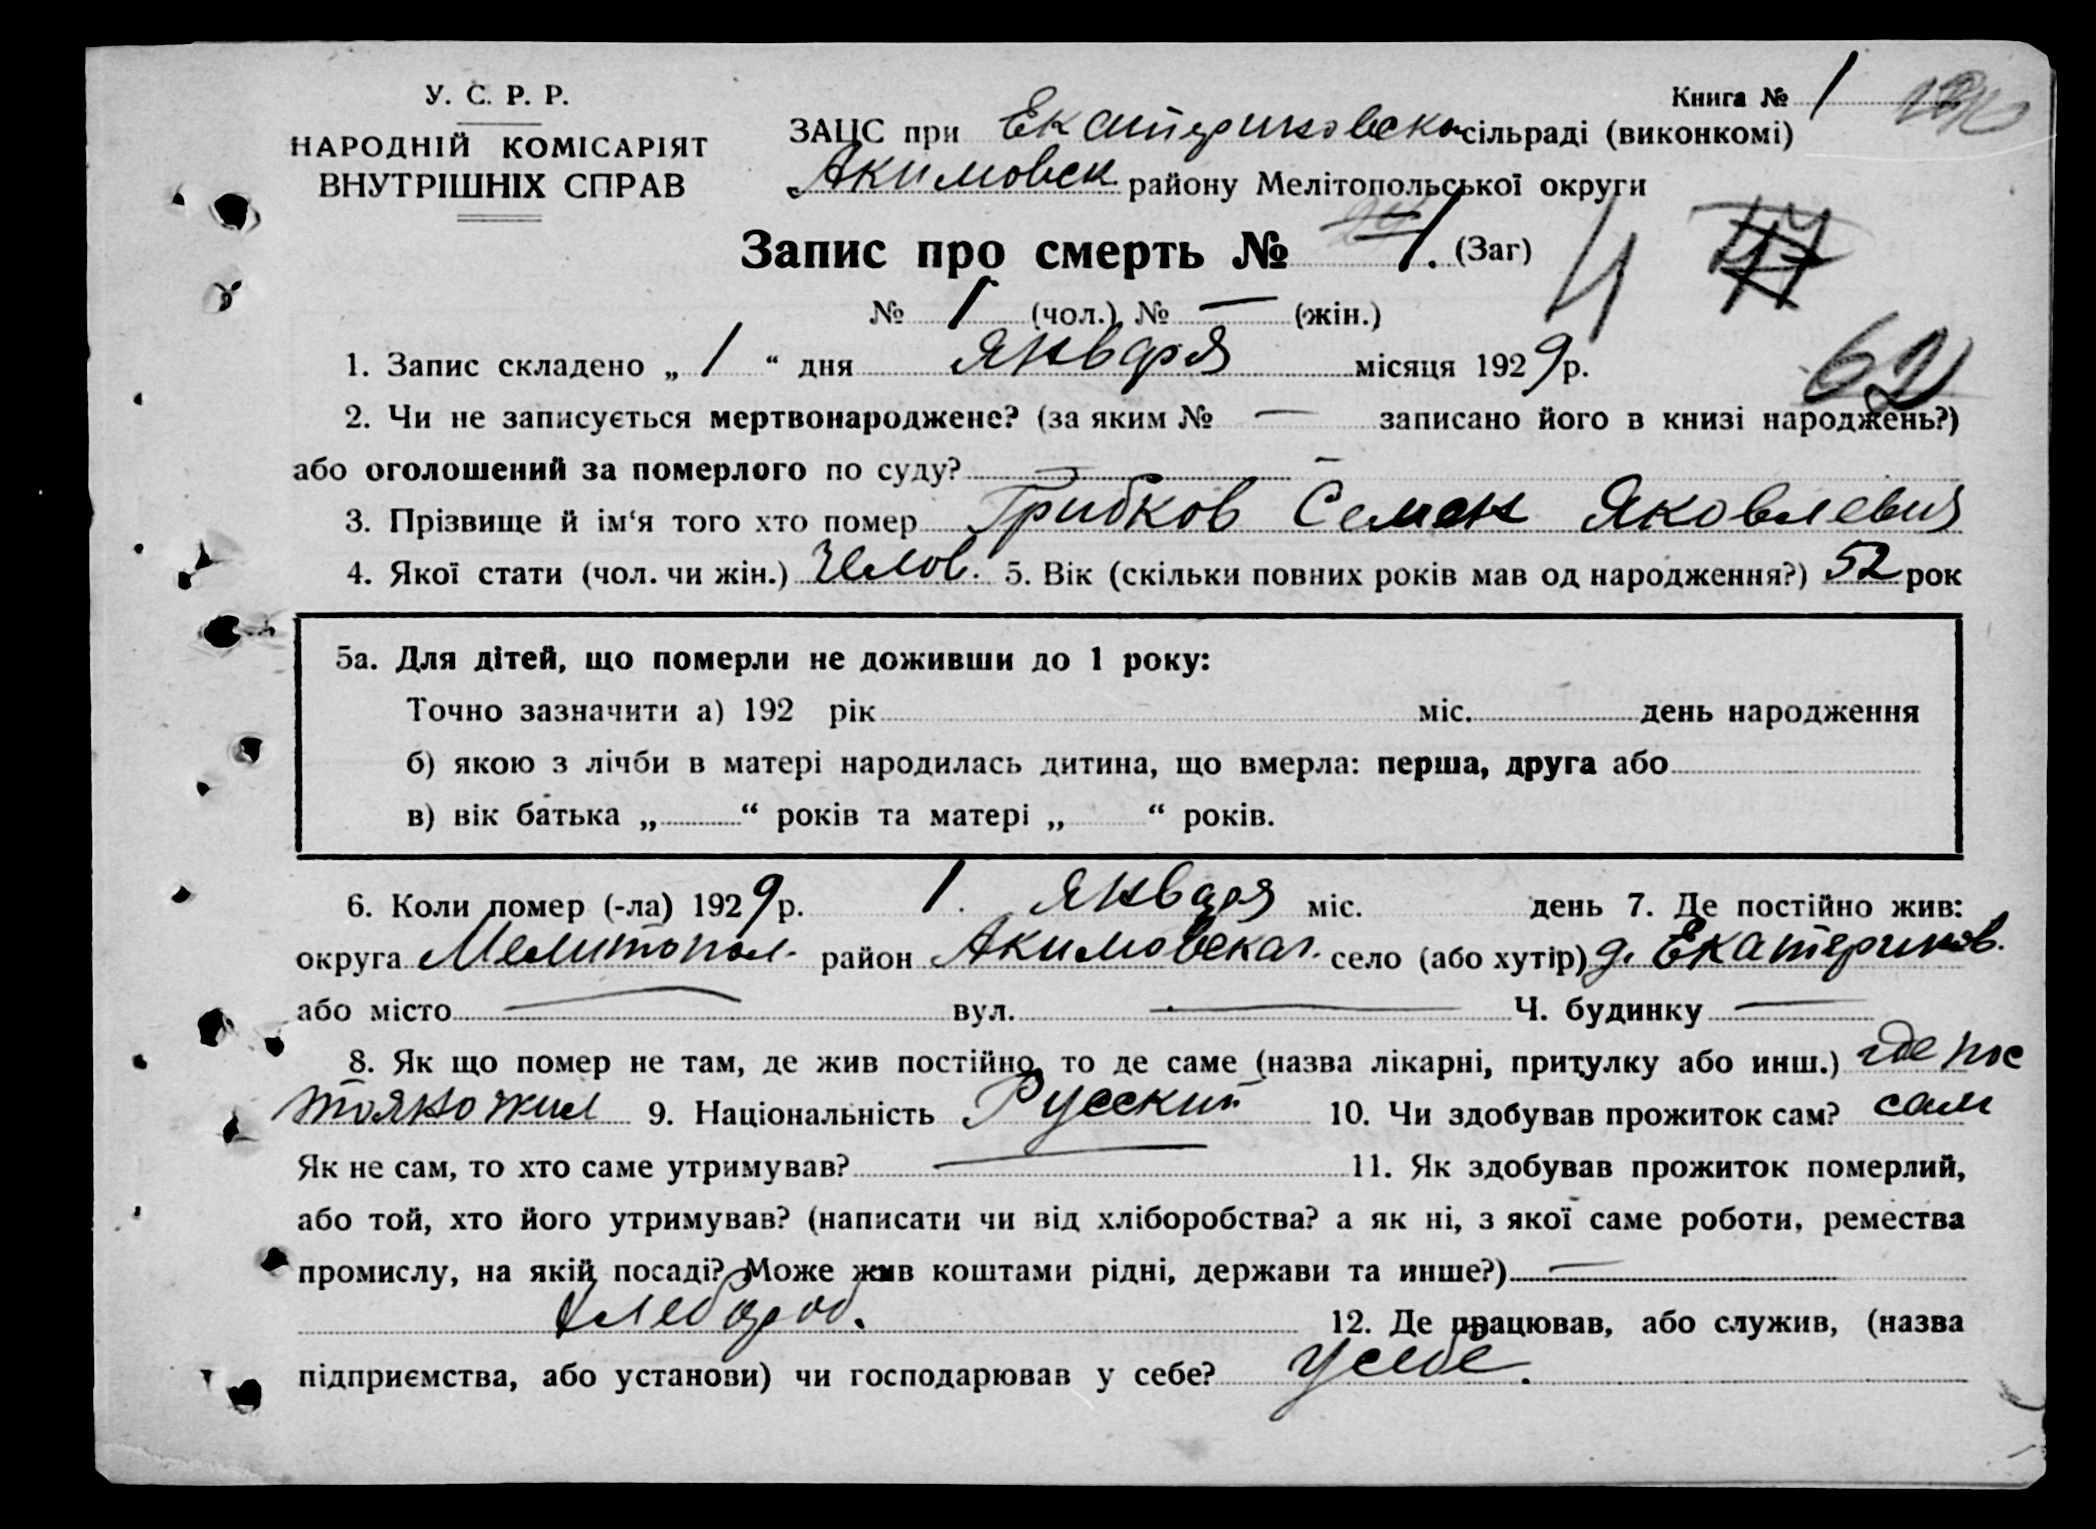 У. С. Р. Р.
НАРОДНІЙ КОМІСАРІЯТ
ВНУТРІШНІХ СПРАВ
Книга № 1
ЗАЦС при Екатериновско сільраді (виконкомі)
Акимовск районy Мелітопольської округи
Запис про смерть № 1. (Заг)
4 47
№ 1 (чол.) № — (жін.)
1. Запис складено „ 1 “ дня Января місяця 1929 р.
62
2. Чи не записується мертвонароджене? (за яким № — записано його в книзі народжень?)
або оголошений за померлого по суду? —
3. Прізвище й ім‘я того хто помер Грибков Семен Яковлевич
4. Якої стати (чол. чи жін.) Челов. 5. Вік (скільки повних років мав од народження?) 52 рок
5а. Для дітей, що померли не доживши до 1 року:
Точно зазначити а) 192 рік міс. день народження
б) якою з лічби в матері народилась дитина, що вмерла: перша, друга або
в) вік батька „ “ років та матері „ “ років.
6. Коли помер (-ла) 1929 р. 1. Января міс. день 7. Де постійно жив:
округа Мелитопол. район Акимовская. село (або хутір) д. Екатеринов.
або місто — вул. — Ч. будинку —
8. Як що помер не там, де жив постійно, то де саме (назва лікарні, притулку або инш.) где пос
тояно жил 9. Національність Русский 10. Чи здобував прожиток сам? сам
Як не сам, то хто саме утримував? — 11. Як здобував прожиток померлий,
або той, хто його утримував? (написати чи від хліборобства? а як ні, з якої саме роботи, ремества
промислу, на якій посаді? Може жив коштами рідні, держави та инше?) —
Хлебороб. 12. Де працював, або служив, (назва
підприємства, або установи) чи господарював у себе? У себе.